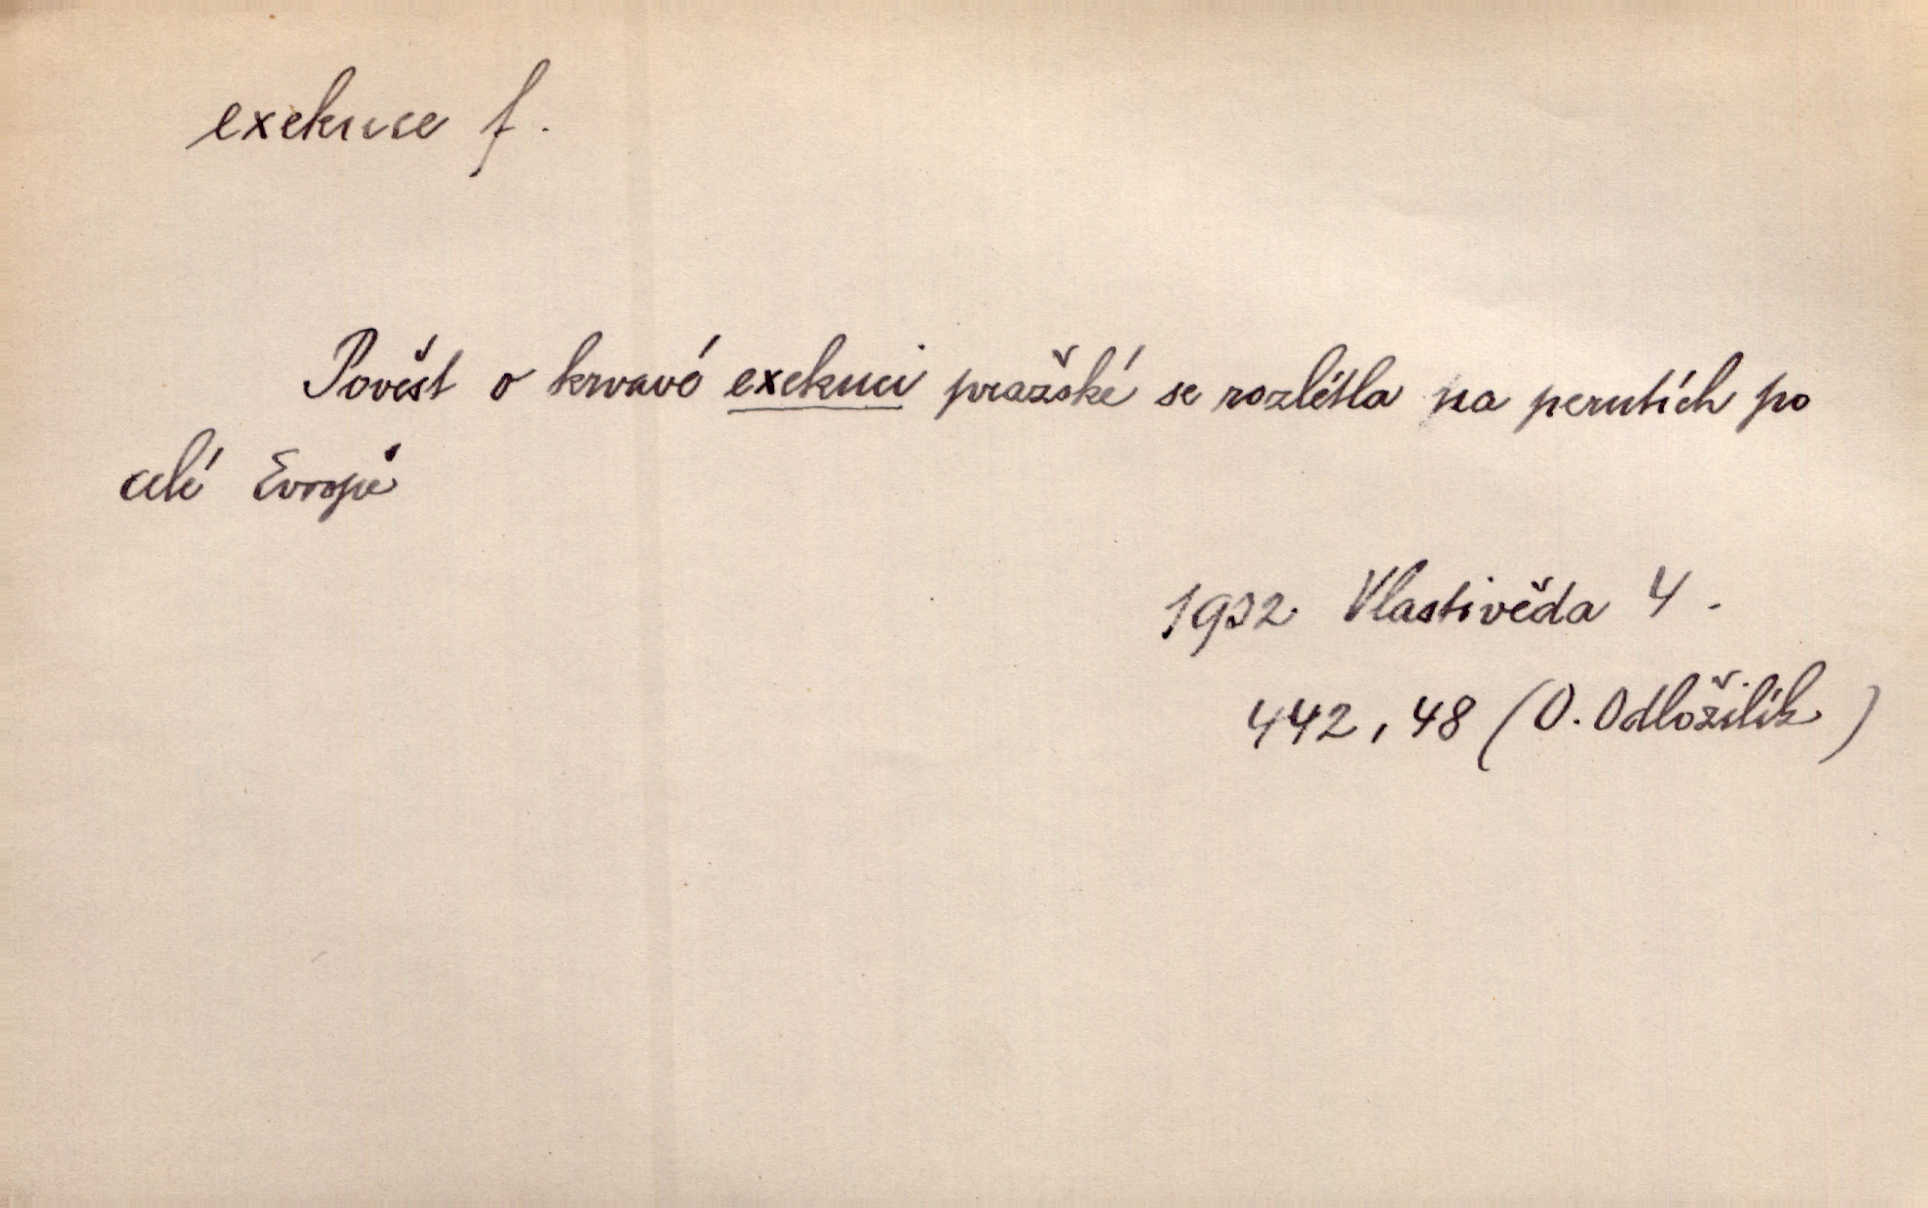 exekuce f.
Pověst o krvavé exekuci pražské se rozlétla na perutích po
celé Evropě
1932 Vlastivěda 4.
442, 48 (O. Odložilík)